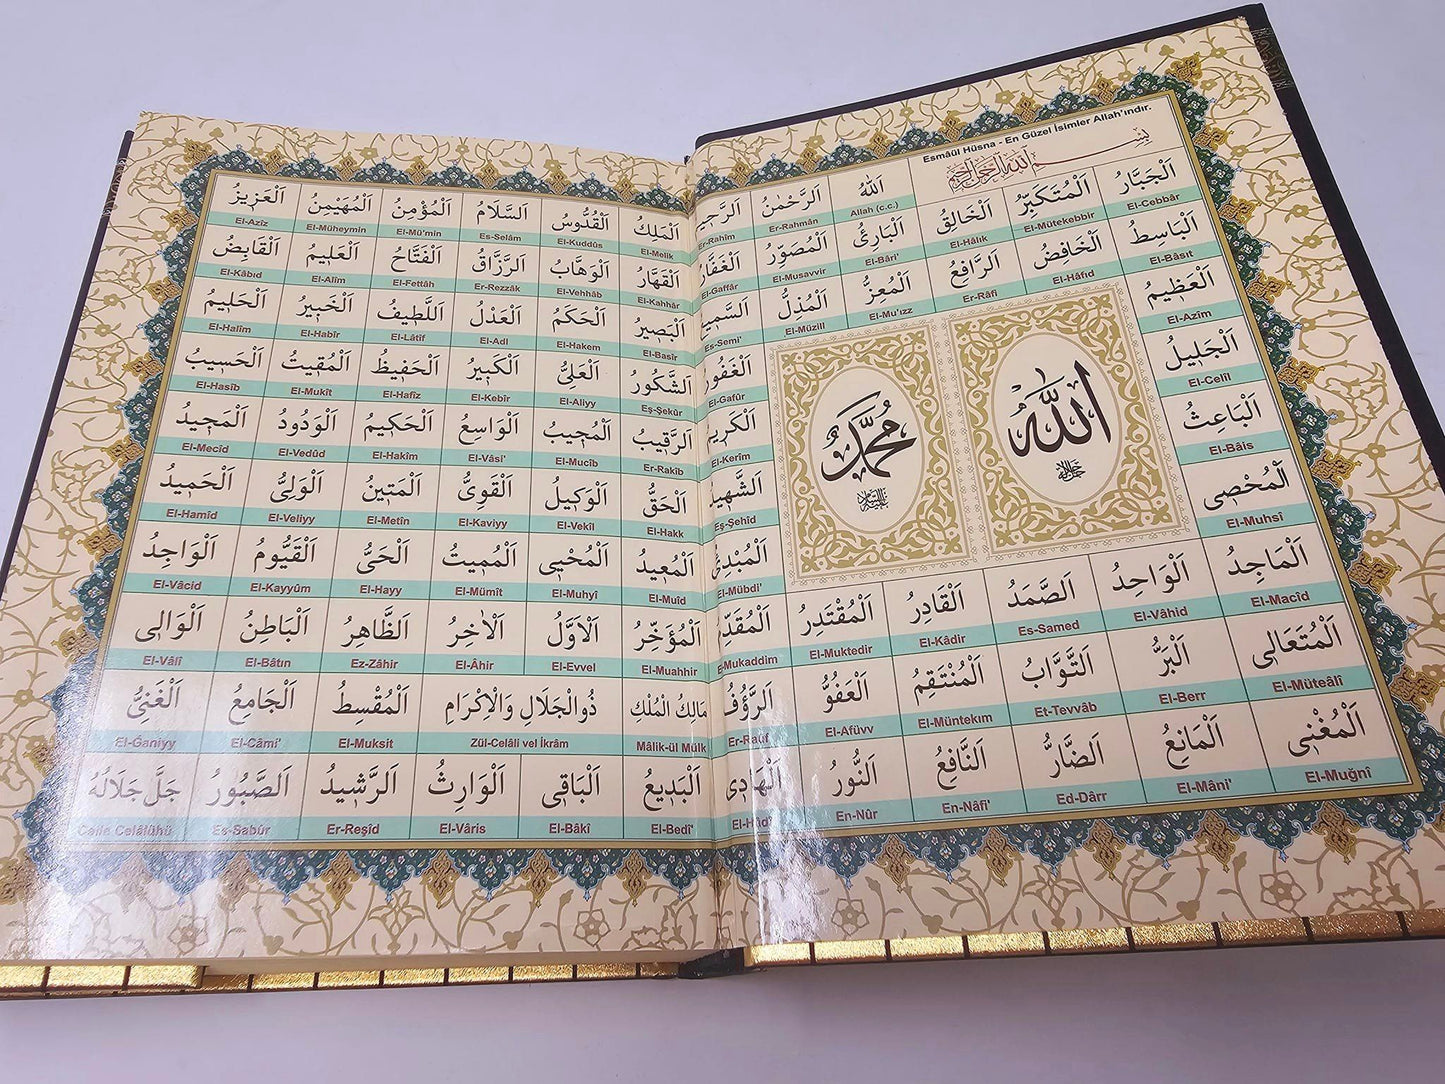 Esmâül Hüsna - En Güzel İsimler Allah'ındır.
بِسْمِ اللّٰهِ الرَّحْمٰنِ الرَّحِيمِ
اَللّٰهُ اَلرَّحْمٰنُ اَلرَّحِيمُ اَلْمَلِكُ اَلْقُدُّوسُ اَلسَّلَامُ اَلْمُؤْمِنُ اَلْمُهَيْمِنُ اَلْعَزِيزُ
Allah (c.c.) Er-Rahmân Er-Rahîm El-Melik El-Kuddûs Es-Selâm El-Mü'min El-Müheymin El-Azîz
اَلْجَبَّارُ اَلْمُتَكَبِّرُ اَلْخَالِقُ اَلْبَارِئُ اَلْمُصَوِّرُ اَلْغَفَّارُ اَلْقَهَّارُ اَلْوَهَّابُ اَلرَّزَّاقُ اَلْفَتَّاحُ اَلْعَلِيمُ اَلْقَابِضُ
El-Cebbâr El-Mütekebbir El-Hâlık El-Bâri' El-Musavvir El-Gaffâr El-Kahhâr El-Vehhâb Er-Rezzâk El-Fettâh El-Alîm El-Kâbıd
اَلْبَاسِطُ اَلْخَافِضُ اَلرَّافِعُ اَلْمُعِزُّ اَلْمُذِلُّ اَلسَّمِيعُ اَلْبَصِيرُ اَلْحَكَمُ اَلْعَدْلُ اَللَّطِيفُ اَلْخَبِيرُ اَلْحَلِيمُ
El-Bâsıt El-Hâfıd Er-Râfi El-Mu'ızz El-Müzill Es-Semi' El-Basîr El-Hakem El-Adl El-Lâtîf El-Habîr El-Halîm
اَلْعَظِيمُ اَلْغَفُورُ اَلشَّكُورُ اَلْعَلِيُّ اَلْكَبِيرُ اَلْحَفِيظُ اَلْمُقِيتُ اَلْحَسِيبُ
El-Azîm El-Gafûr Eş-Şekûr El-Aliyy El-Kebîr El-Hafîz El-Mukît El-Hasîb
اَلْجَلِيلُ اَلْكَرِيمُ اَلرَّقِيبُ اَلْمُجِيبُ اَلْوَاسِعُ اَلْحَكِيمُ اَلْوَدُودُ اَلْمَجِيدُ
El-Celîl El-Kerîm Er-Rakîb El-Mucîb El-Vâsi' El-Hakîm El-Vedûd El-Mecîd
اَلْبَاعِثُ اَلشَّهِيدُ اَلْحَقُّ اَلْوَكِيلُ اَلْقَوِيُّ اَلْمَتِينُ اَلْوَلِيُّ اَلْحَمِيدُ
El-Bâis Eş-Şehîd El-Hakk El-Vekîl El-Kaviyy El-Metîn El-Veliyy El-Hamîd
اَلْمُحْصِي اَلْمُبْدِئُ اَلْمُعِيدُ اَلْمُحْيِي اَلْمُمِيتُ اَلْحَيُّ اَلْقَيُّومُ اَلْوَاجِدُ
El-Muhsî El-Mübdi' El-Muîd El-Muhyî El-Mümît El-Hayy El-Kayyûm El-Vâcid
اللّٰه
جل جلاله
مُحَمَّدٌ
عليه السلام
اَلْمَاجِدُ اَلْوَاحِدُ اَلصَّمَدُ اَلْقَادِرُ اَلْمُقْتَدِرُ اَلْمُقَدِّمُ اَلْمُؤَخِّرُ اَلْاَوَّلُ اَلْاٰخِرُ اَلظَّاهِرُ اَلْبَاطِنُ اَلْوَالِي
El-Macîd El-Vâhid Es-Samed El-Kâdir El-Muktedir El-Mukaddim El-Muahhir El-Evvel El-Âhir Ez-Zâhir El-Bâtın El-Vâlî
اَلْمُتَعَالِي اَلْبَرُّ اَلتَّوَّابُ اَلْمُنْتَقِمُ اَلْعَفُوُّ اَلرَّؤُفُ مَالِكُ الْمُلْكِ ذُوالْجَلَالِ وَالْاِكْرَامِ اَلْمُقْسِطُ اَلْجَامِعُ اَلْغَنِيُّ
El-Müteâlî El-Berr Et-Tevvâb El-Müntekım El-Afüvv Er-Rauf Mâlik-ül Mülk Zül-Celâli vel İkrâm El-Muksit El-Câmi' El-Ğaniyy
اَلْمُغْنِي اَلْمَانِعُ اَلضَّارُّ اَلنَّافِعُ اَلنُّورُ اَلْهَادِي اَلْبَدِيعُ اَلْبَاقِي اَلْوَارِثُ اَلرَّشِيدُ اَلصَّبُورُ جَلَّ جَلَالُهُ
El-Muğnî El-Mâni' Ed-Dârr En-Nâfi' En-Nûr El-Hâdî El-Bedî' El-Bâkî El-Vâris Er-Reşîd Es-Sabûr Celle Celâlühü